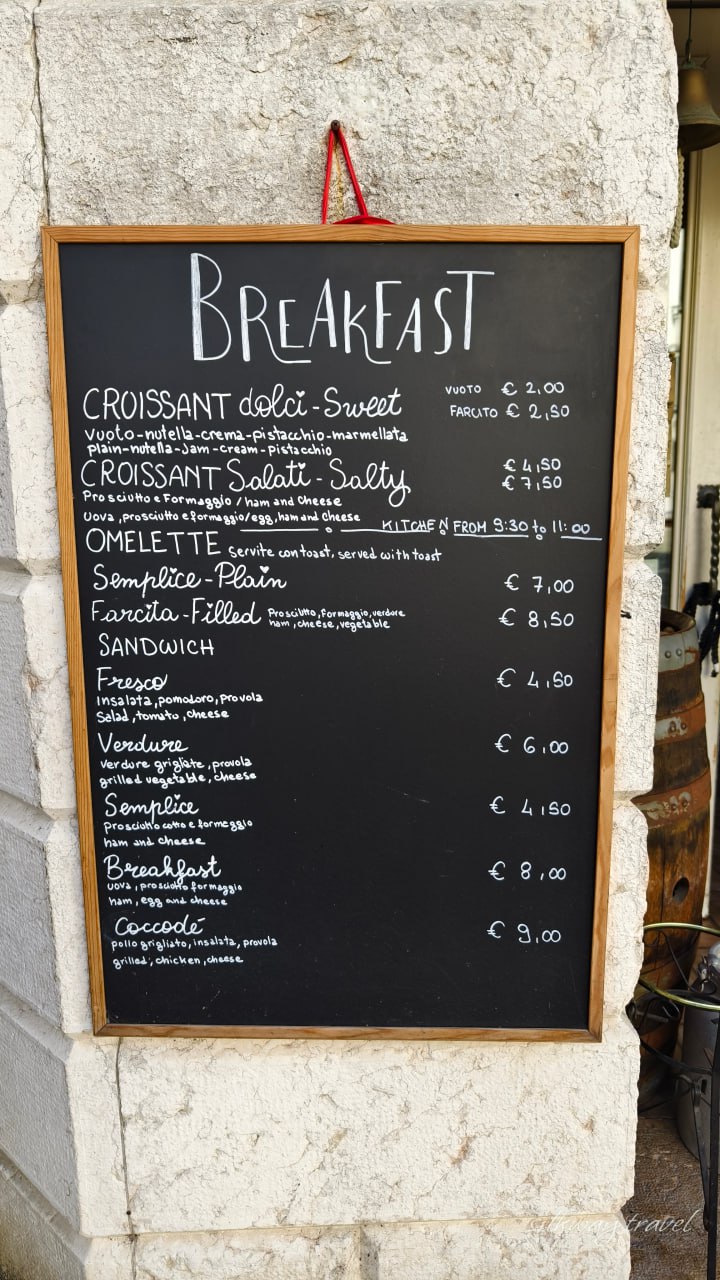 BREAKFAST
CROISSANT dolci - Sweet VUOTO € 2,00
FARCITO € 2,50
vuoto-nutella-crema-pistacchio-marmellata
plain-nutella-Jam-cream-pistacchio
CROISSANT Salati - Salty € 4,50
€ 7,50
Prosciutto e Formaggio / ham and cheese
Uova, prosciutto e formaggio/egg, ham and cheese
KITCHEN FROM 9:30 to 11:00
OMELETTE servite con toast, served with toast
Semplice - Plain € 7,00
Farcita - Filled Prosciutto, Formaggio, verdure € 8,50
ham, cheese, vegetable
SANDWICH
Fresco € 4,50
Insalata, pomodoro, provola
Salad, tomato, cheese
Verdure € 6,00
verdure grigliate, provola
grilled vegetable, cheese
Semplice € 4,50
prosciutto cotto e formaggio
ham and cheese
Breakfast € 8,00
uova, prosciutto formaggio
ham, egg and cheese
Coccodé € 9,00
pollo grigliato, insalata, provola
grilled, chicken, cheese
travel